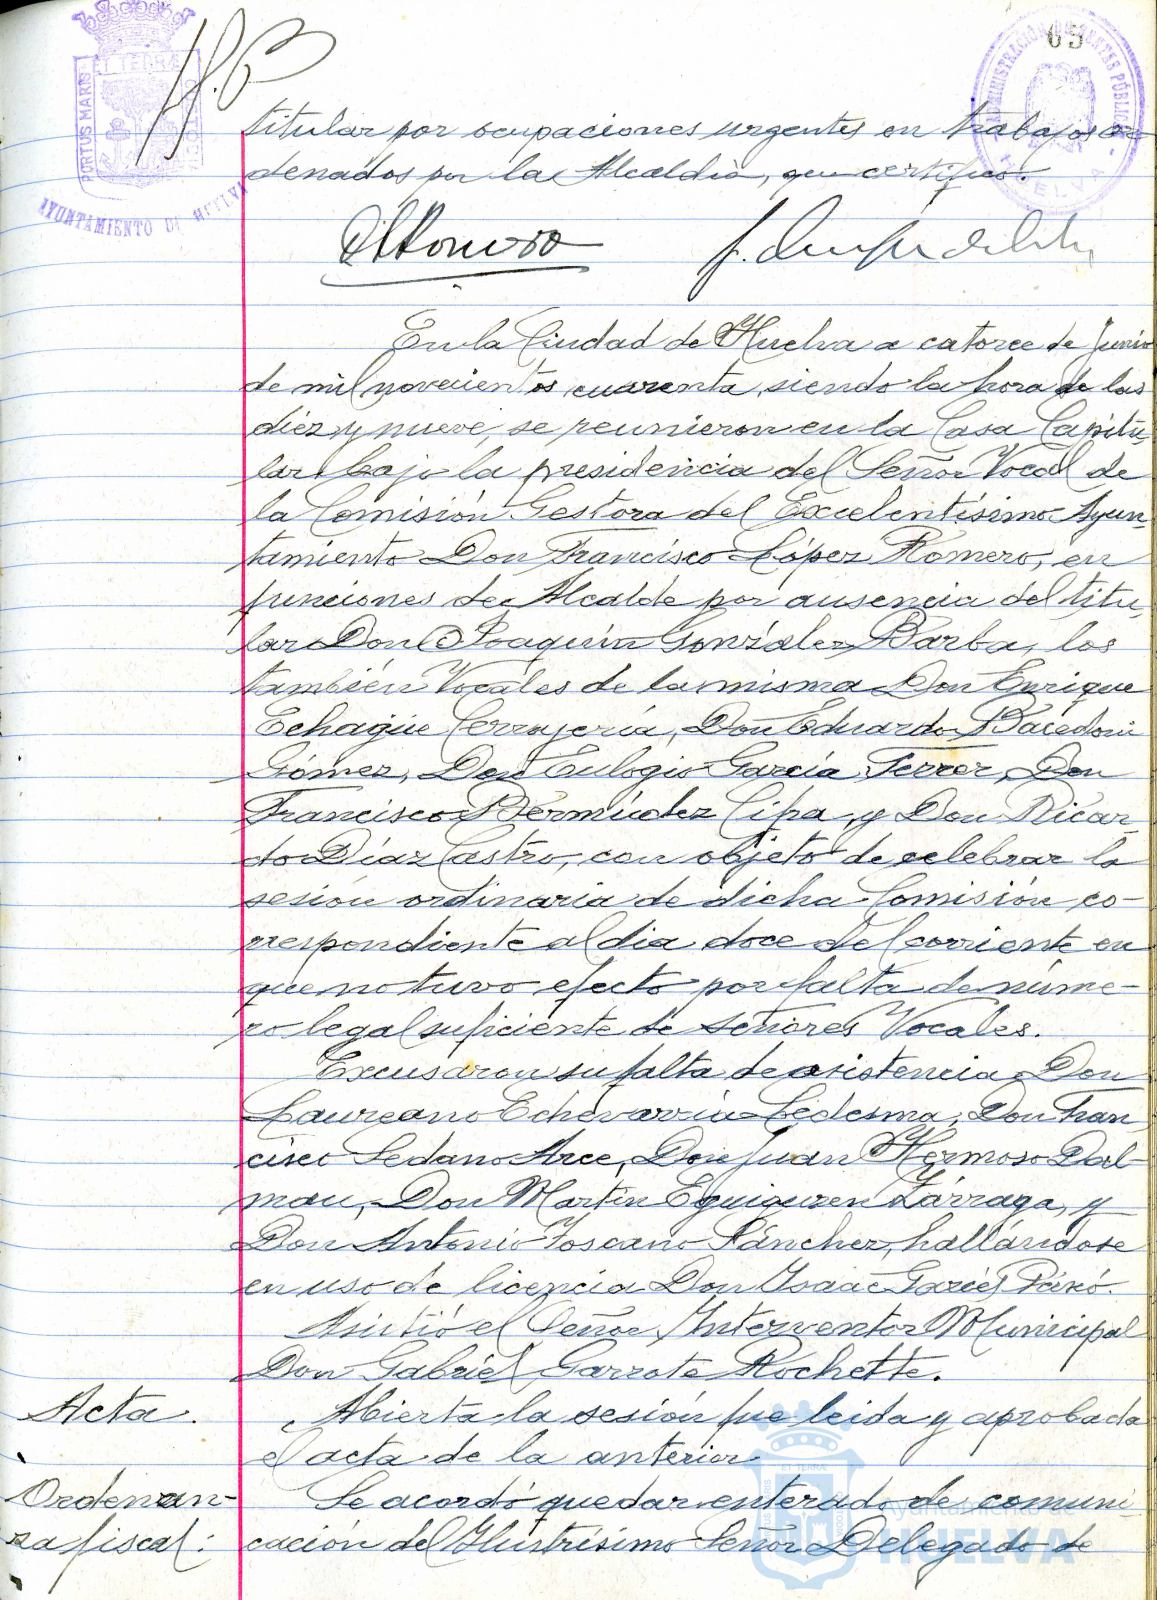 65
PORTUS MARIS ET TERRÆ CUSTODIA
AYUNTAMIENTO DE HUELVA
ADMINISTRACION DE RENTAS PÚBLICAS
HUELVA
titular por ocupaciones urgentes en trabajos or-
denados por la Alcaldia, que certifico.
En la Ciudad de Huelva a catorce de Junio
de mil novecientos cuarenta, siendo la hora de las
diez y nueve, se reunieron en la Casa Capitu-
lar bajo la presidencia del Señor Vocal de
la Comisión Gestora del Excelentísimo Ayun-
tamiento Don Francisco López Romero, en
funciones de Alcalde por ausencia del titu-
lar Don Joaquín González Barba, los
también Vocales de la misma Don Enrique
Echagüe Cerrajería, Don Eduardo Bacedoni
Gómez, Don Eulogio García Ferrer, Don
Francisco Bermúdez Cipa, y Don Ricar-
do Díaz Castro, con objeto de celebrar la
sesión ordinaria de dicha Comisión co-
rrespondiente al dia doce del corriente en
que no tuvo efecto por falta de núme-
ro legal suficiente de señores Vocales.
Excusaron su falta de asistencia Don
Laureano Echevarria Ledesma, Don Fran
cisco Sedano Arce, Don Juan Hermoso Dal-
mau, Don Martín Eguiguren Lárraga, y
Don Antonio Toscano Sánchez, hallándose
en uso de licencia Don Isaac
Asistió el Señor Interventor Municipal
Don Gabriel Garrote Rochette.
Acta.
Abierta la sesión fue leida y aprobada
el acta de la anterior.
Ordenan-
za fiscal:
Se acordó quedar enterado de comuni-
cación del Ilustrísimo Señor Delegado de
Ayuntamiento de
HUELVA